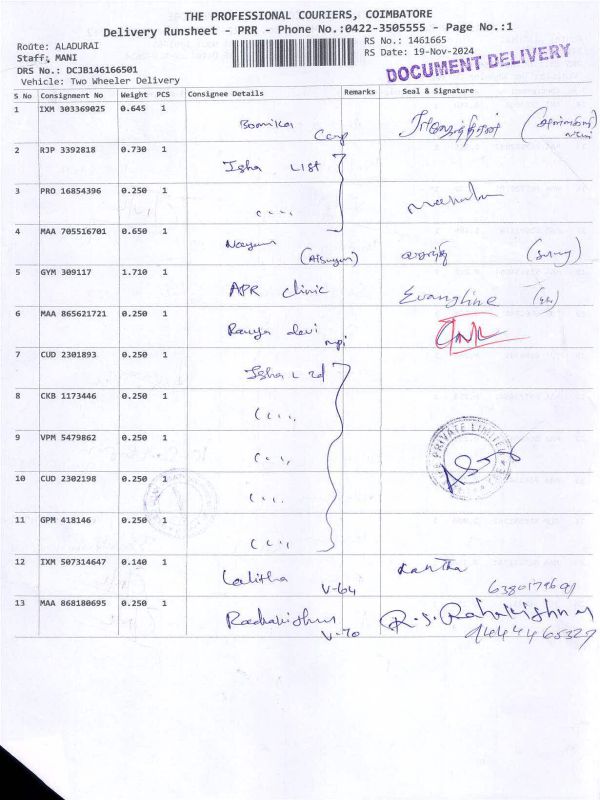 THE PROFESSIONAL COURIERS, COIMBATORE
Delivery Runsheet - PRR - Phone No.:0422-3505555 - Page No.:1
Route: ALADURAI
RS No.: 1461665
Staff: MANI
RS Date: 19-Nov-2024
DRS No.: DCJB146166501
DOCUMENT DELIVERY
Vehicle: Two Wheeler Delivery
S No Consignment No Weight PCS Consignee Details Remarks Seal & Signature
1 IXM 303369025 0.645 1
2 RJP 3392818 0.730 1 Isha List
3 PRO 16854396 0.250 1
4 MAA 705516701 0.650 1
5 GYM 309117 1.710 1 APR Clinic Evangline
6 MAA 865621721 0.250 1 Ramya devi
7 CUD 2301893 0.250 1 Isha L
8 CKB 1173446 0.250 1
9 VPM 5479862 0.250 1
PRIVATE LIMITED
10 CUD 2302198 0.250 1
11 GPM 418146 0.250 1
12 IXM 507314647 0.140 1 Lalitha V-64
13 MAA 868180695 0.250 1 Radhakishnn V-70 R.S. Rahakishnan